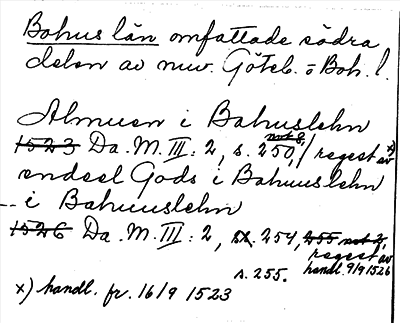 Bohus län omfattade södra
delen av nuv. Göteb. o Boh. l.
Almuen i Bahuslehn
1523 Da. M. III: 2, s. 250, not 8, / regest av x)
endeel Gods i Bahuuslehn
i Bahuuslehn
1526 Da. M. III: 2, s. 254, 255 not 3,
regest av
s. 255. handl. 9/9 1526
x) handl. fr. 16/9 1523